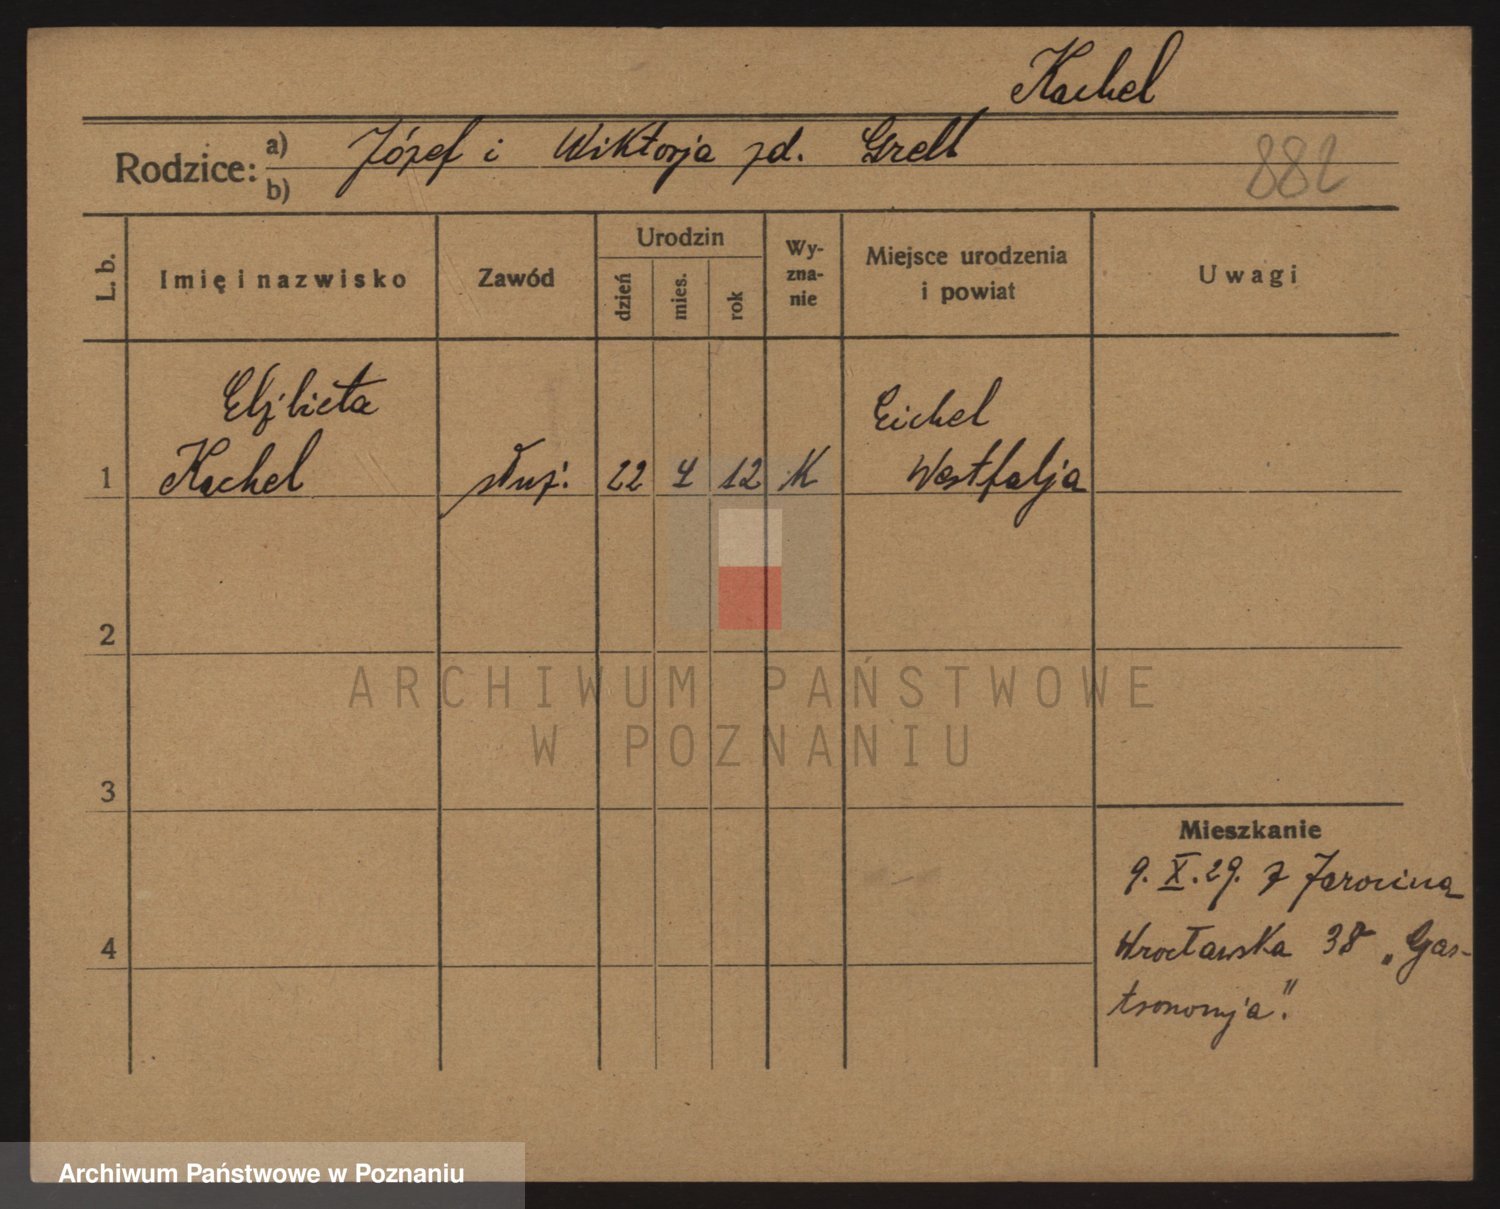 Kachel
Rodzice: a) Józef i Wiktorja zd. Grelt
b)
882
L. b.
Imię i nazwisko
Zawód
Urodzin
dzień
mies.
rok
Wy-
zna-
nie
Miejsce urodzenia
i powiat
Uwagi
Elżbieta
Eichel
1 Kachel służ. 22 4 12 K Westfalja
2
ARCHIWUM PAŃSTWOWE
W POZNANIU
3
Mieszkanie
9. X. 29. z Jarocina
4 Wrocławska 38 „Gas-
tronomja".
Archiwum Państwowe w Poznaniu